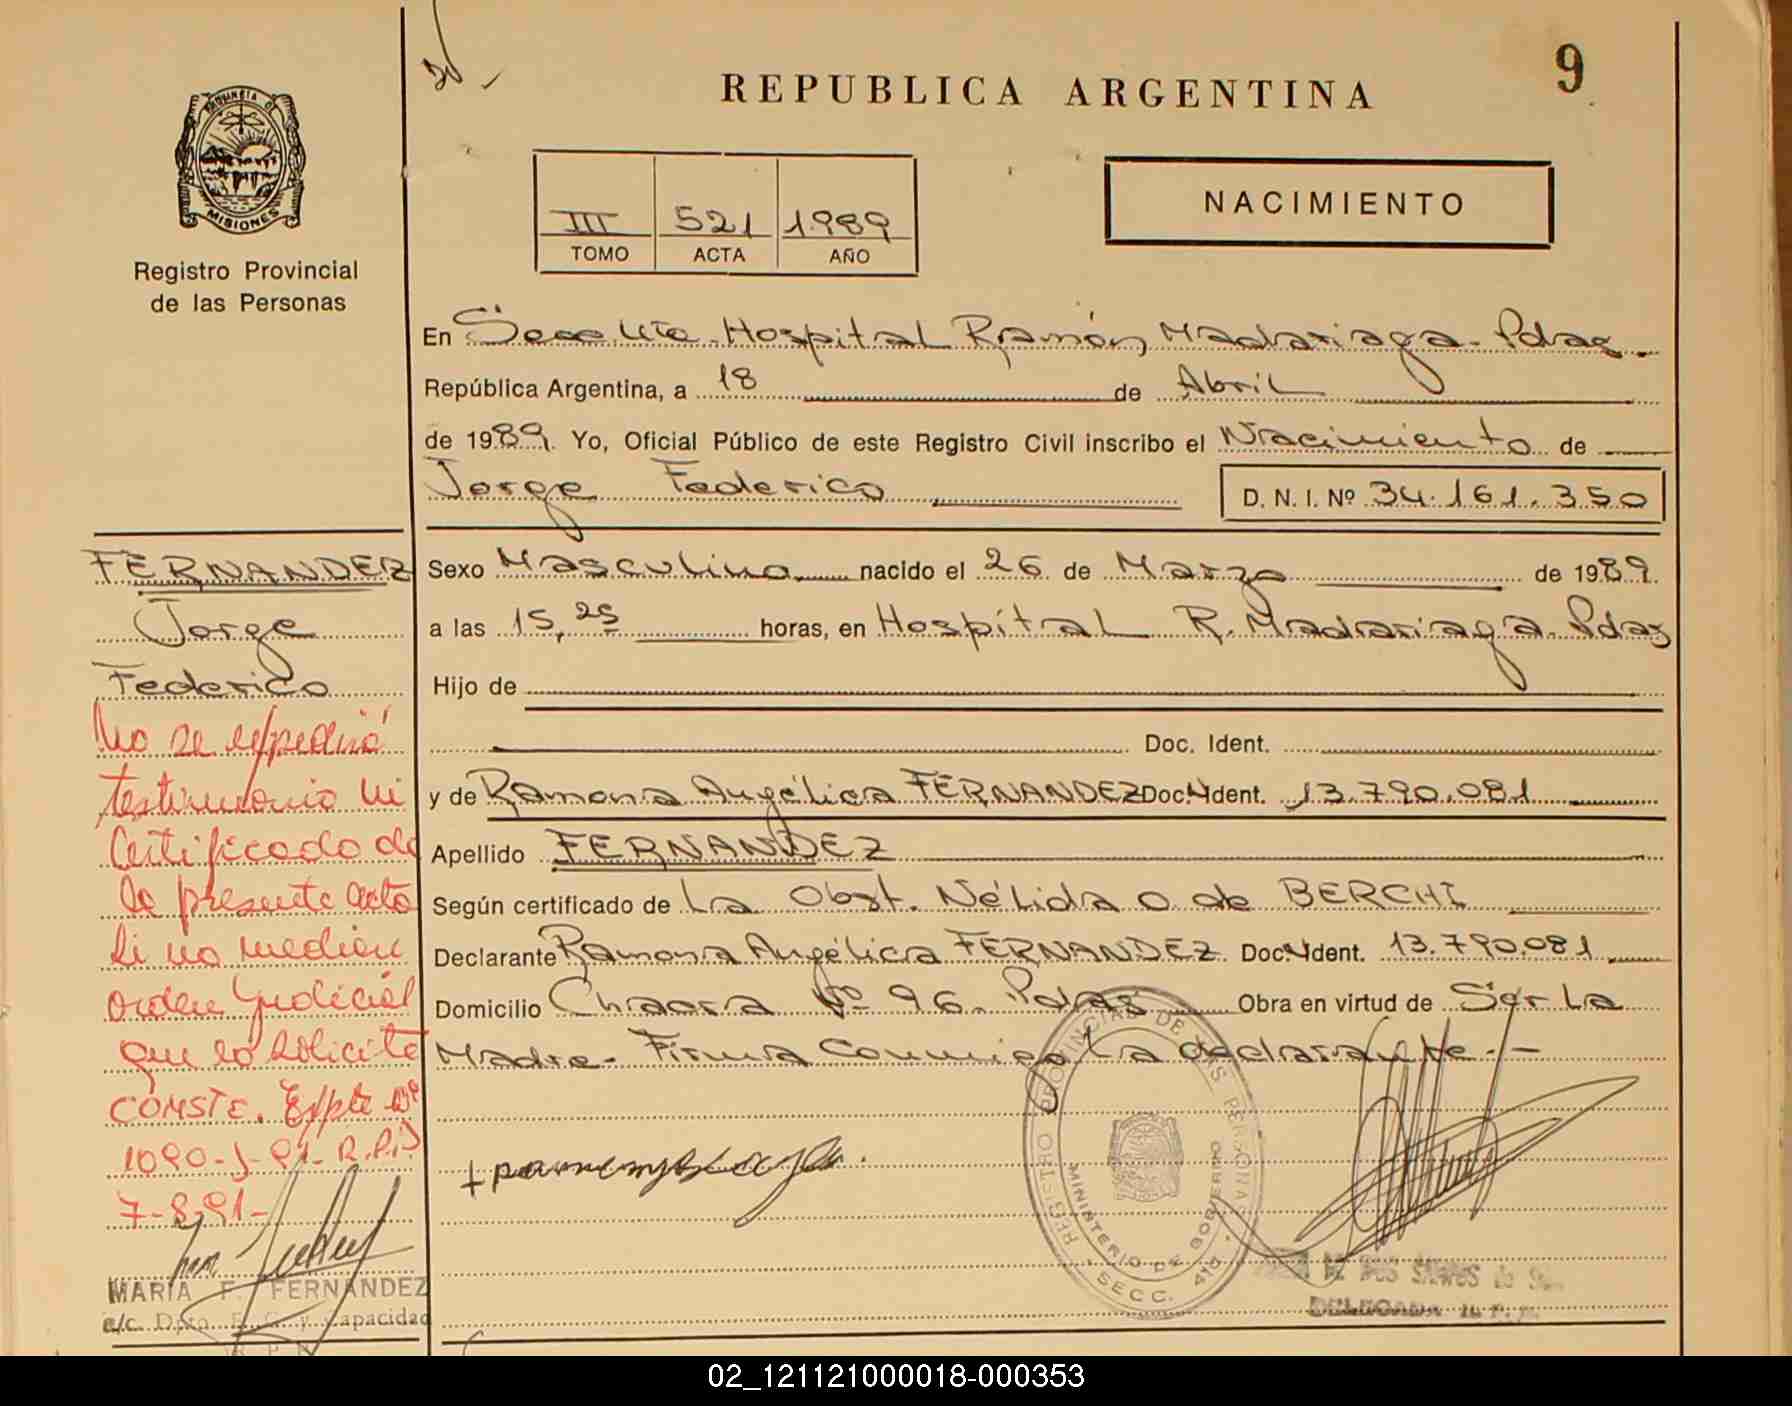 9
REPUBLICA ARGENTINA
PROVINCIA DE
MISIONES
Registro Provincial
de las Personas
III 521 1989
TOMO ACTA AÑO
NACIMIENTO
En Hospital Ramón Madariaga - Pdas
República Argentina, a 18 de Abril
de 1989. Yo, Oficial Público de este Registro Civil inscribo el Nacimiento de
Jorge Federico D. N. I. Nº 34.161.350
FERNANDEZ
Jorge
Federico
Sexo Masculino nacido el 26 de Marzo de 1989.
a las 15,25 horas, en Hospital R. Madariaga - Pdas
Hijo de
Doc. Ident.
y de Ramona Angélica FERNANDEZ Doc. Ident. 13.790.081
Apellido FERNANDEZ
Según certificado de La Obst. Nélida O de BERCHI
Declarante Ramona Angélica FERNANDEZ Doc. Ident. 13.790.081
Domicilio Chacra Nº 96. Pdas Obra en virtud de Ser La
Madre - Firma Conmigo La declarante. -
No se expedirá
testimonio ni
Certificado de
la presente acta
Si no median
orden Judicial
que lo solicite
CONSTE. Expte Nº
1090-J-91-R.P.
7-8-91-
MARIA F. FERNANDEZ
a/c. Dpto. E. C. y Capacidad
REGISTRO PROVINCIAL DE LAS PERSONAS
MINISTERIO DE GOBIERNO
SECC. 410
02_121121000018-000353